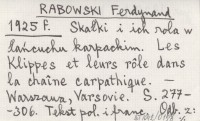 RABOWSKI Ferdynand
1925 r. Skałki i ich rola w
łańcuchu karpackim. Les
Klippes et leurs rôle dans
la chaîne carpathique. —
Warszawa, Varsovie. S. 277–
–306. Tekst pol. i franc. Odb. z: